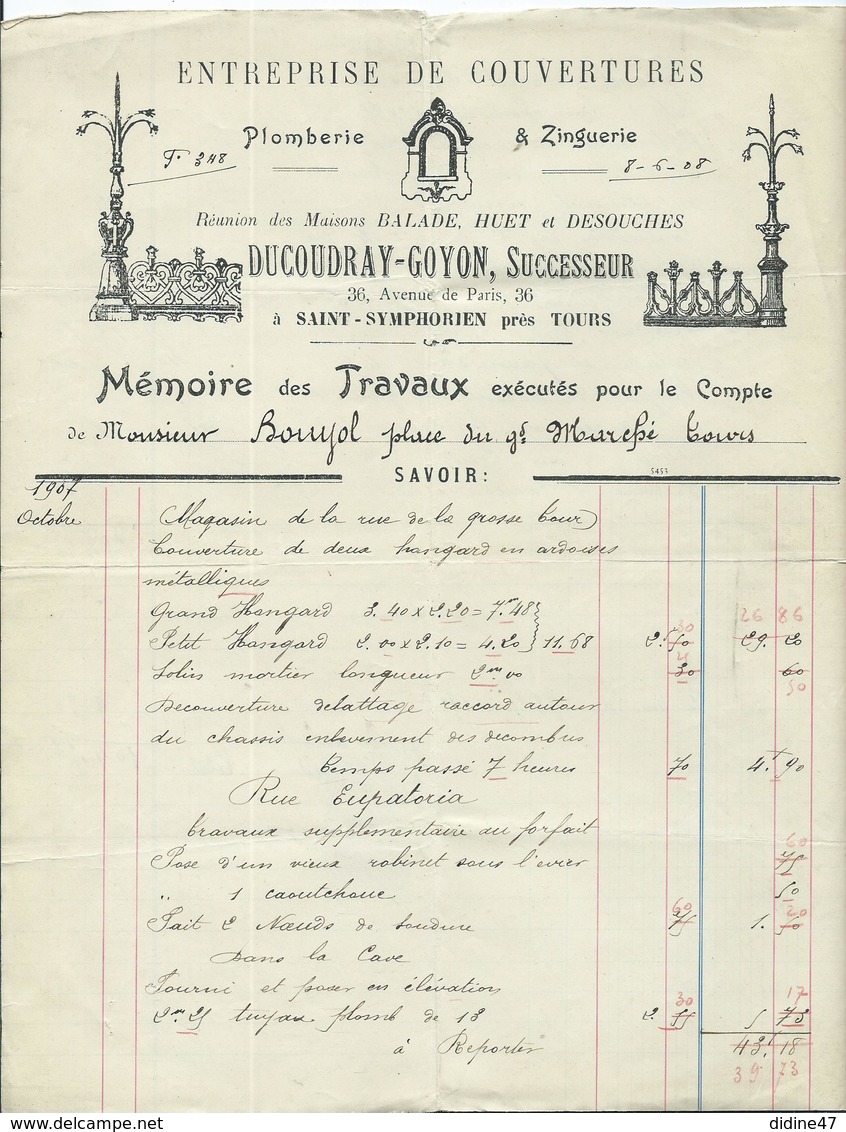 ENTREPRISE DE COUVERTURES
Plomberie & Zinguerie
F. 348 8-6-08
Réunion des Maisons BALADE, HUET et DESOUCHES
DUCOUDRAY-GOYON, SUCCESSEUR
36, Avenue de Paris, 36
à SAINT-SYMPHORIEN près TOURS
Mémoire des Travaux exécutés pour le Compte
de Monsieur Boujol place du gd Marché Tours
SAVOIR: 5453
1907
Octobre Magasin de la rue de la grosse Tour
Couverture de deux hangard en ardoises
métalliques
30 26 86
Grand Hangard 3.40 x 2.20 = 7m48
Petit Hangard 2.00 x 2.10 = 4.20 } 11.68 2f50 29. 20
Solin mortier longueur 2m00 30 60
50
Decouverture delattage raccord autour
du chassis enlevement des decombres
temps passé 7 heures 70 4.f 90
Rue Eupatoria
travaux supplementaire au forfait
60
Pose d'un vieux robinet sous l'evier 75
" 1 caoutchouc 50
60 20
Fait 2 Nœuds de soudure 75 1. 50
Dans la Cave
Fourni et poser en élévation
30 17
2m25 tuyau plomb de 13 2. 55 5 73
à Reporter 43.f 18
39 73
didine47